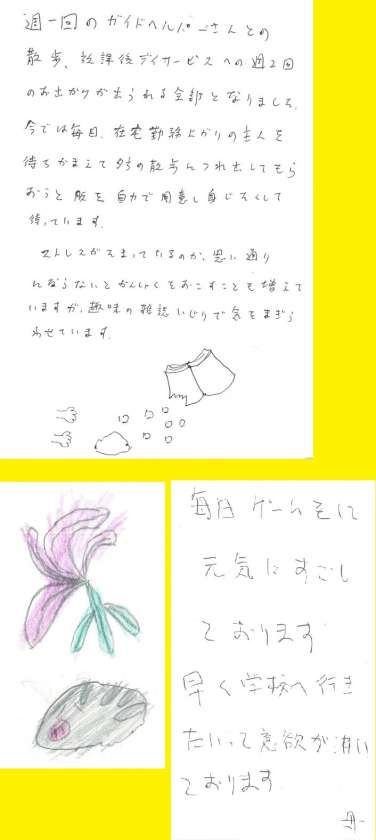 週一回のガイドヘルパーさんとの
散歩、放課後デイサービスへの週2回
のお出かけが出られる全部となりました。
今では毎日、在宅勤務上がりの主人を
待ちかまえて夕方の散歩につれ出してもら
おうと服を自力で用意し自じたくして
待っています。
ストレスがたまっているのか、思い通り
にならないとかんしゃくをおこすことも増えて
いますが、趣味の雑誌いじりで気をまぎら
わせています。
毎日ゲームをして
元気にすごし
ております
早く学校へ行き
たいって意欲が沸い
ております。
母